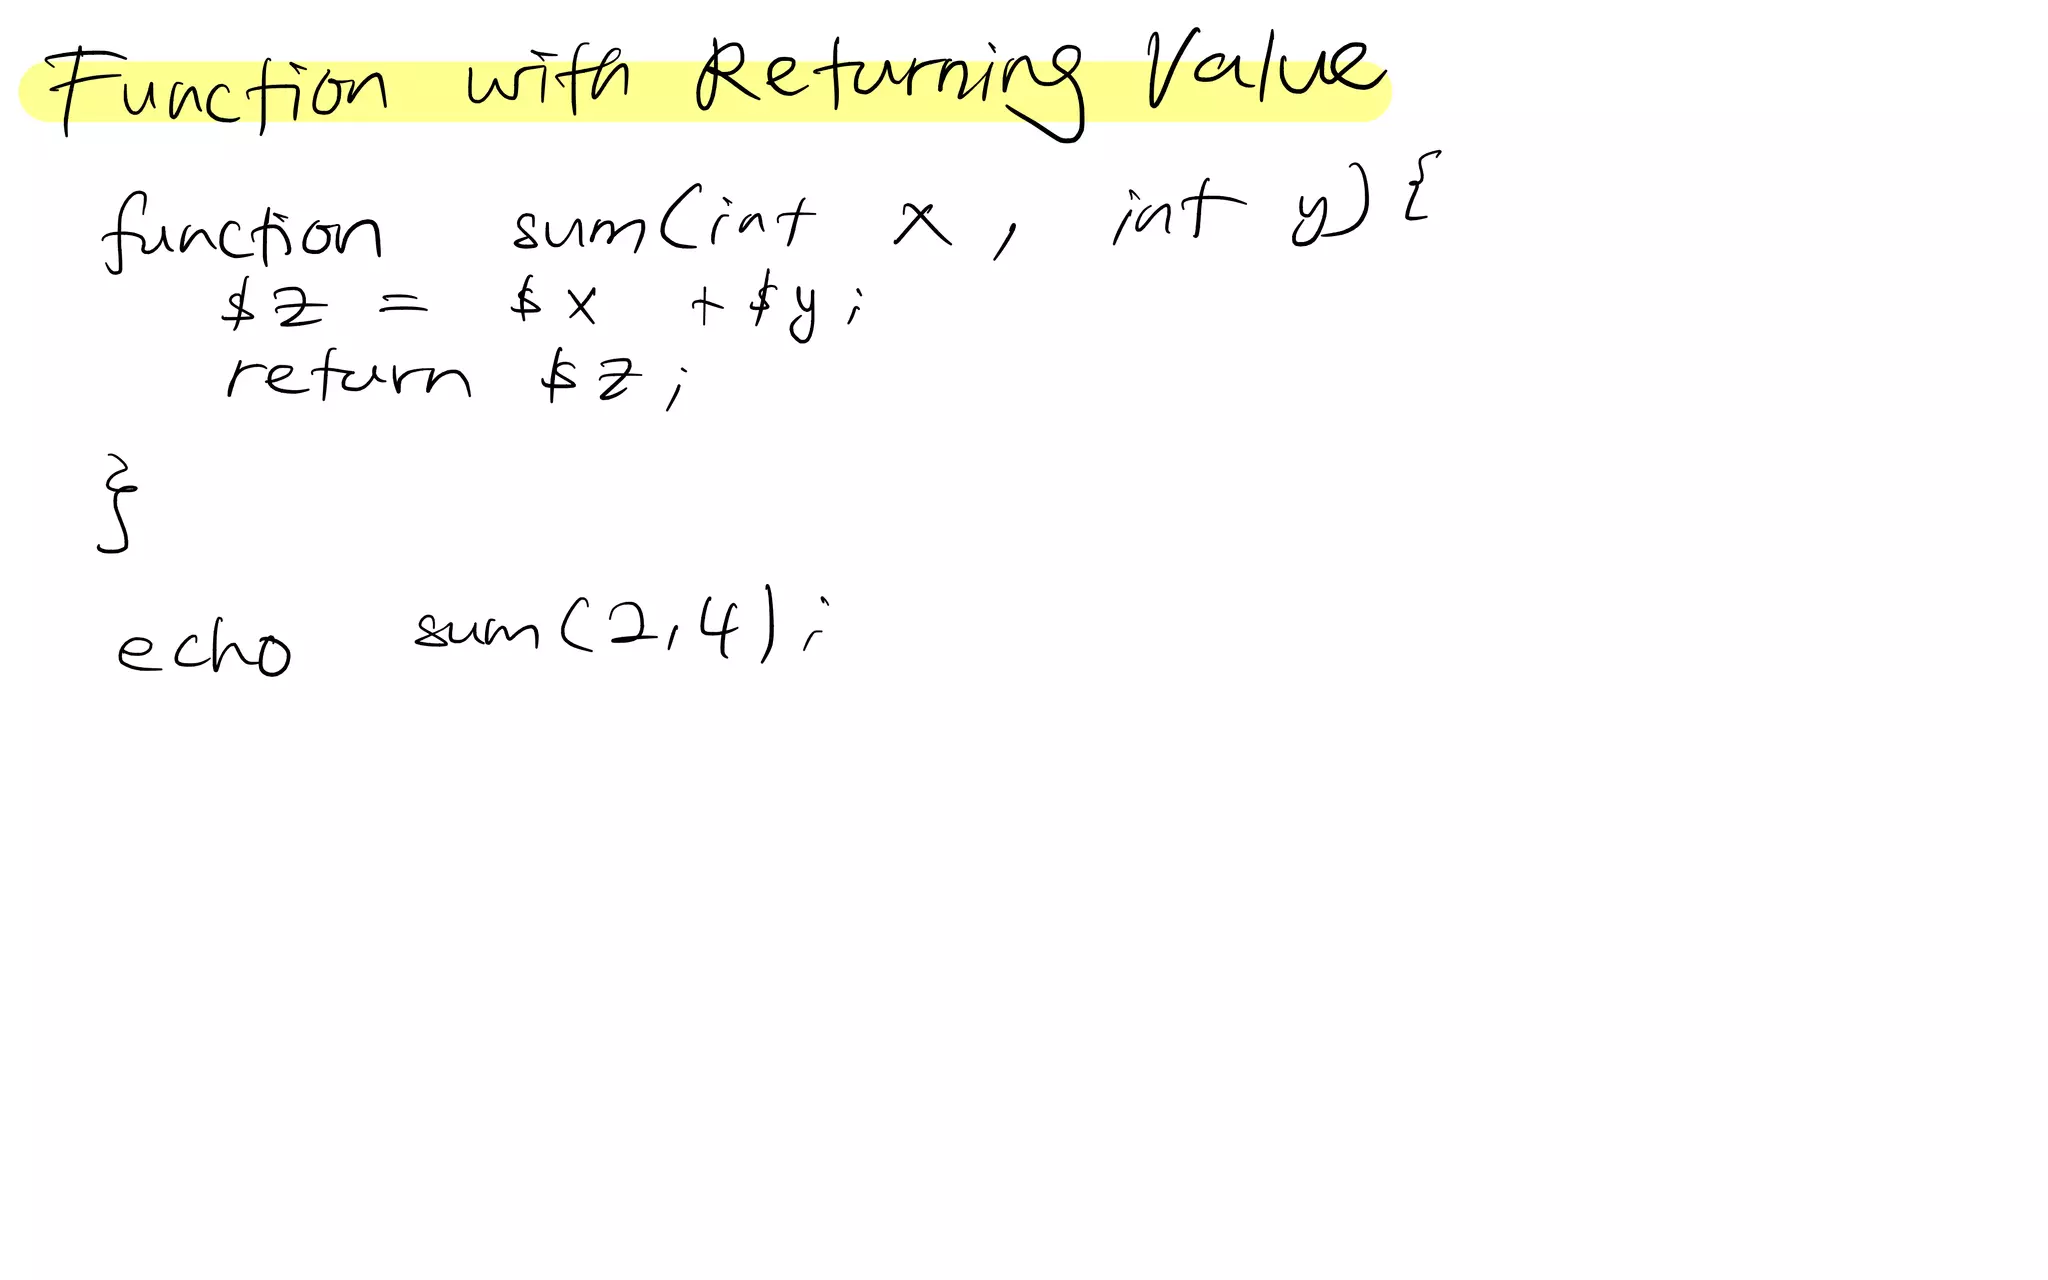 Function with Returning Value
function sum(int x, int y){
$z = $x + $y;
return $z;
}
echo sum(2,4);